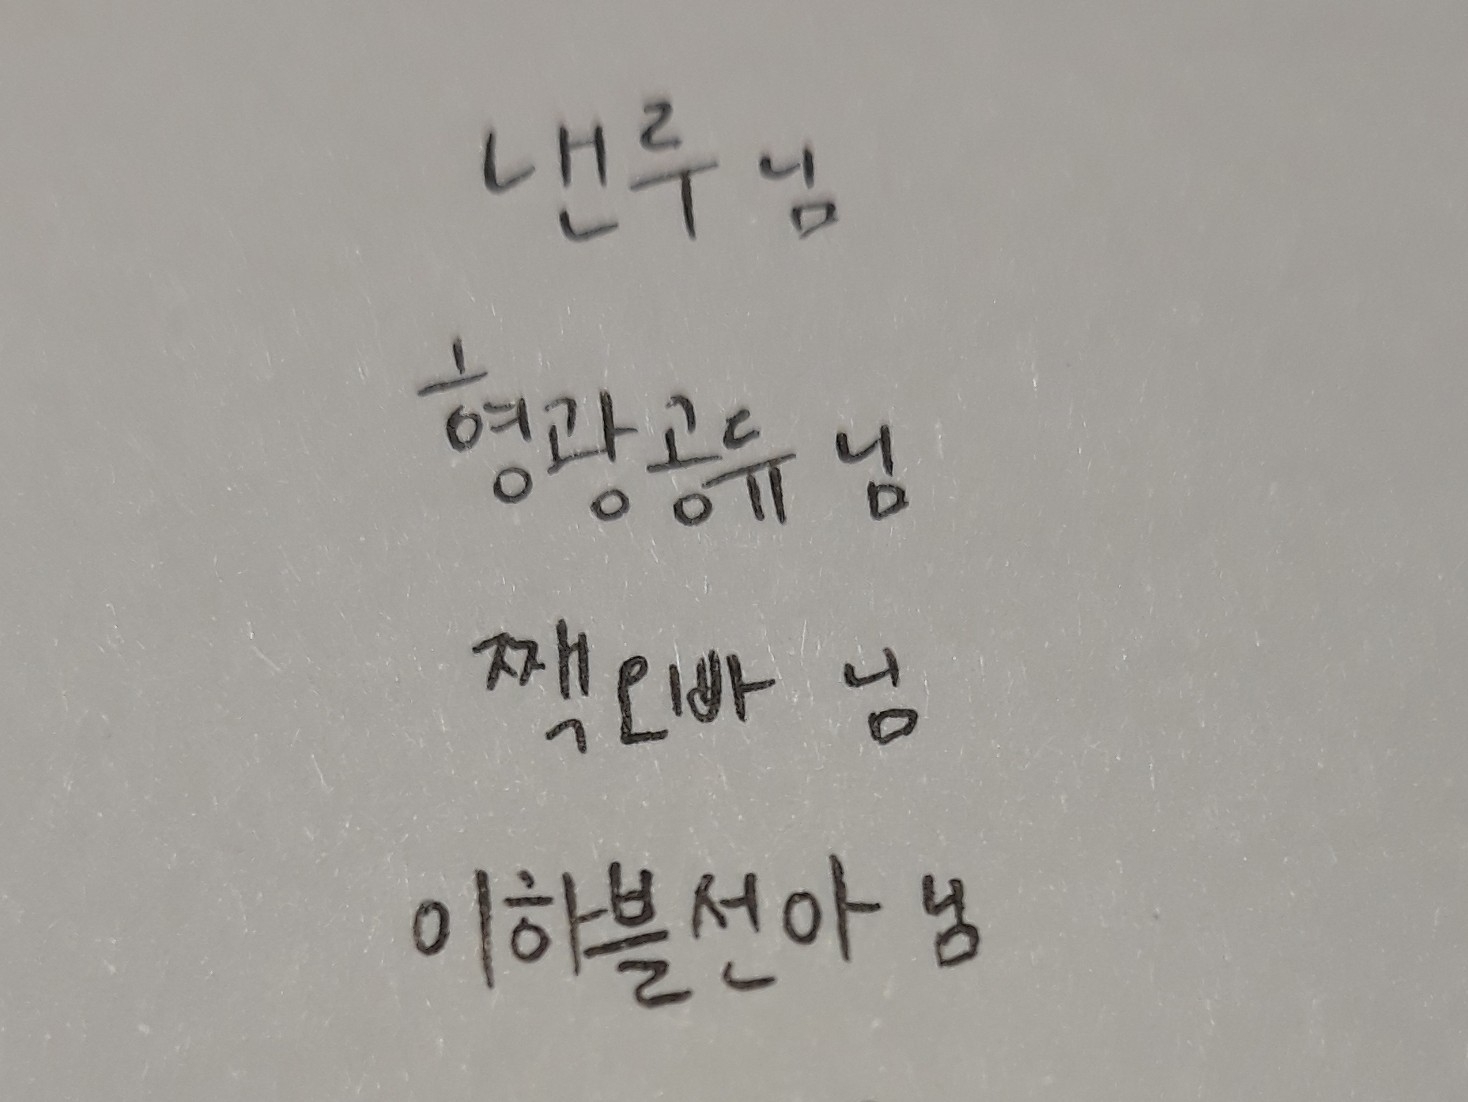 낸루 님
형광공듀 님
짹인바 님
이하블선아 님